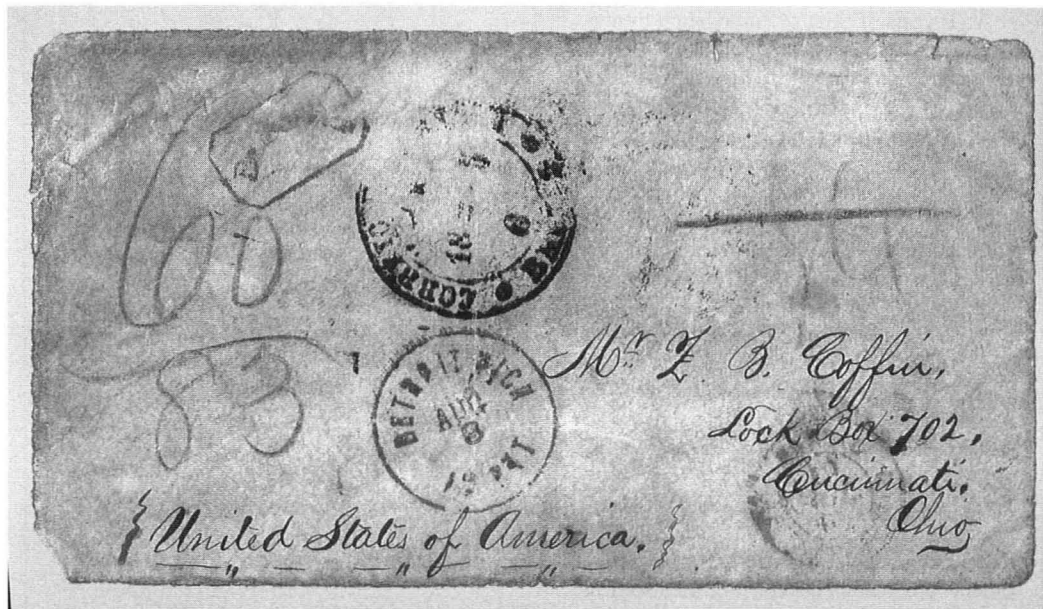 CORREIO
18
DETROIT MICH
AUG
8
19 PAI
Mr Z B. Coffin,
Lock Box 702,
Cincinnati.
Ohio
United States of America.